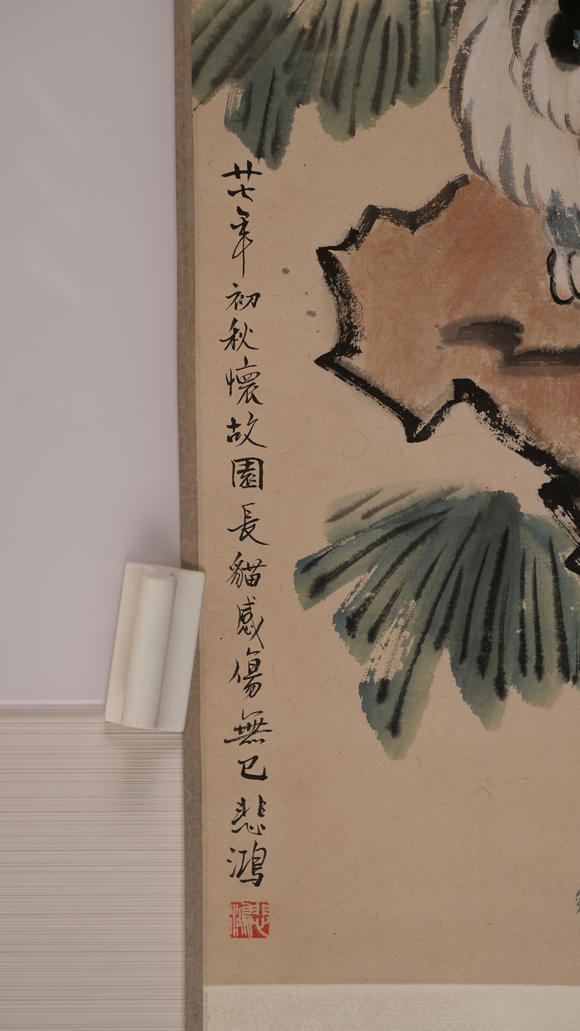 廿七年初秋懷故園長貓感傷無已悲鴻
悲鴻